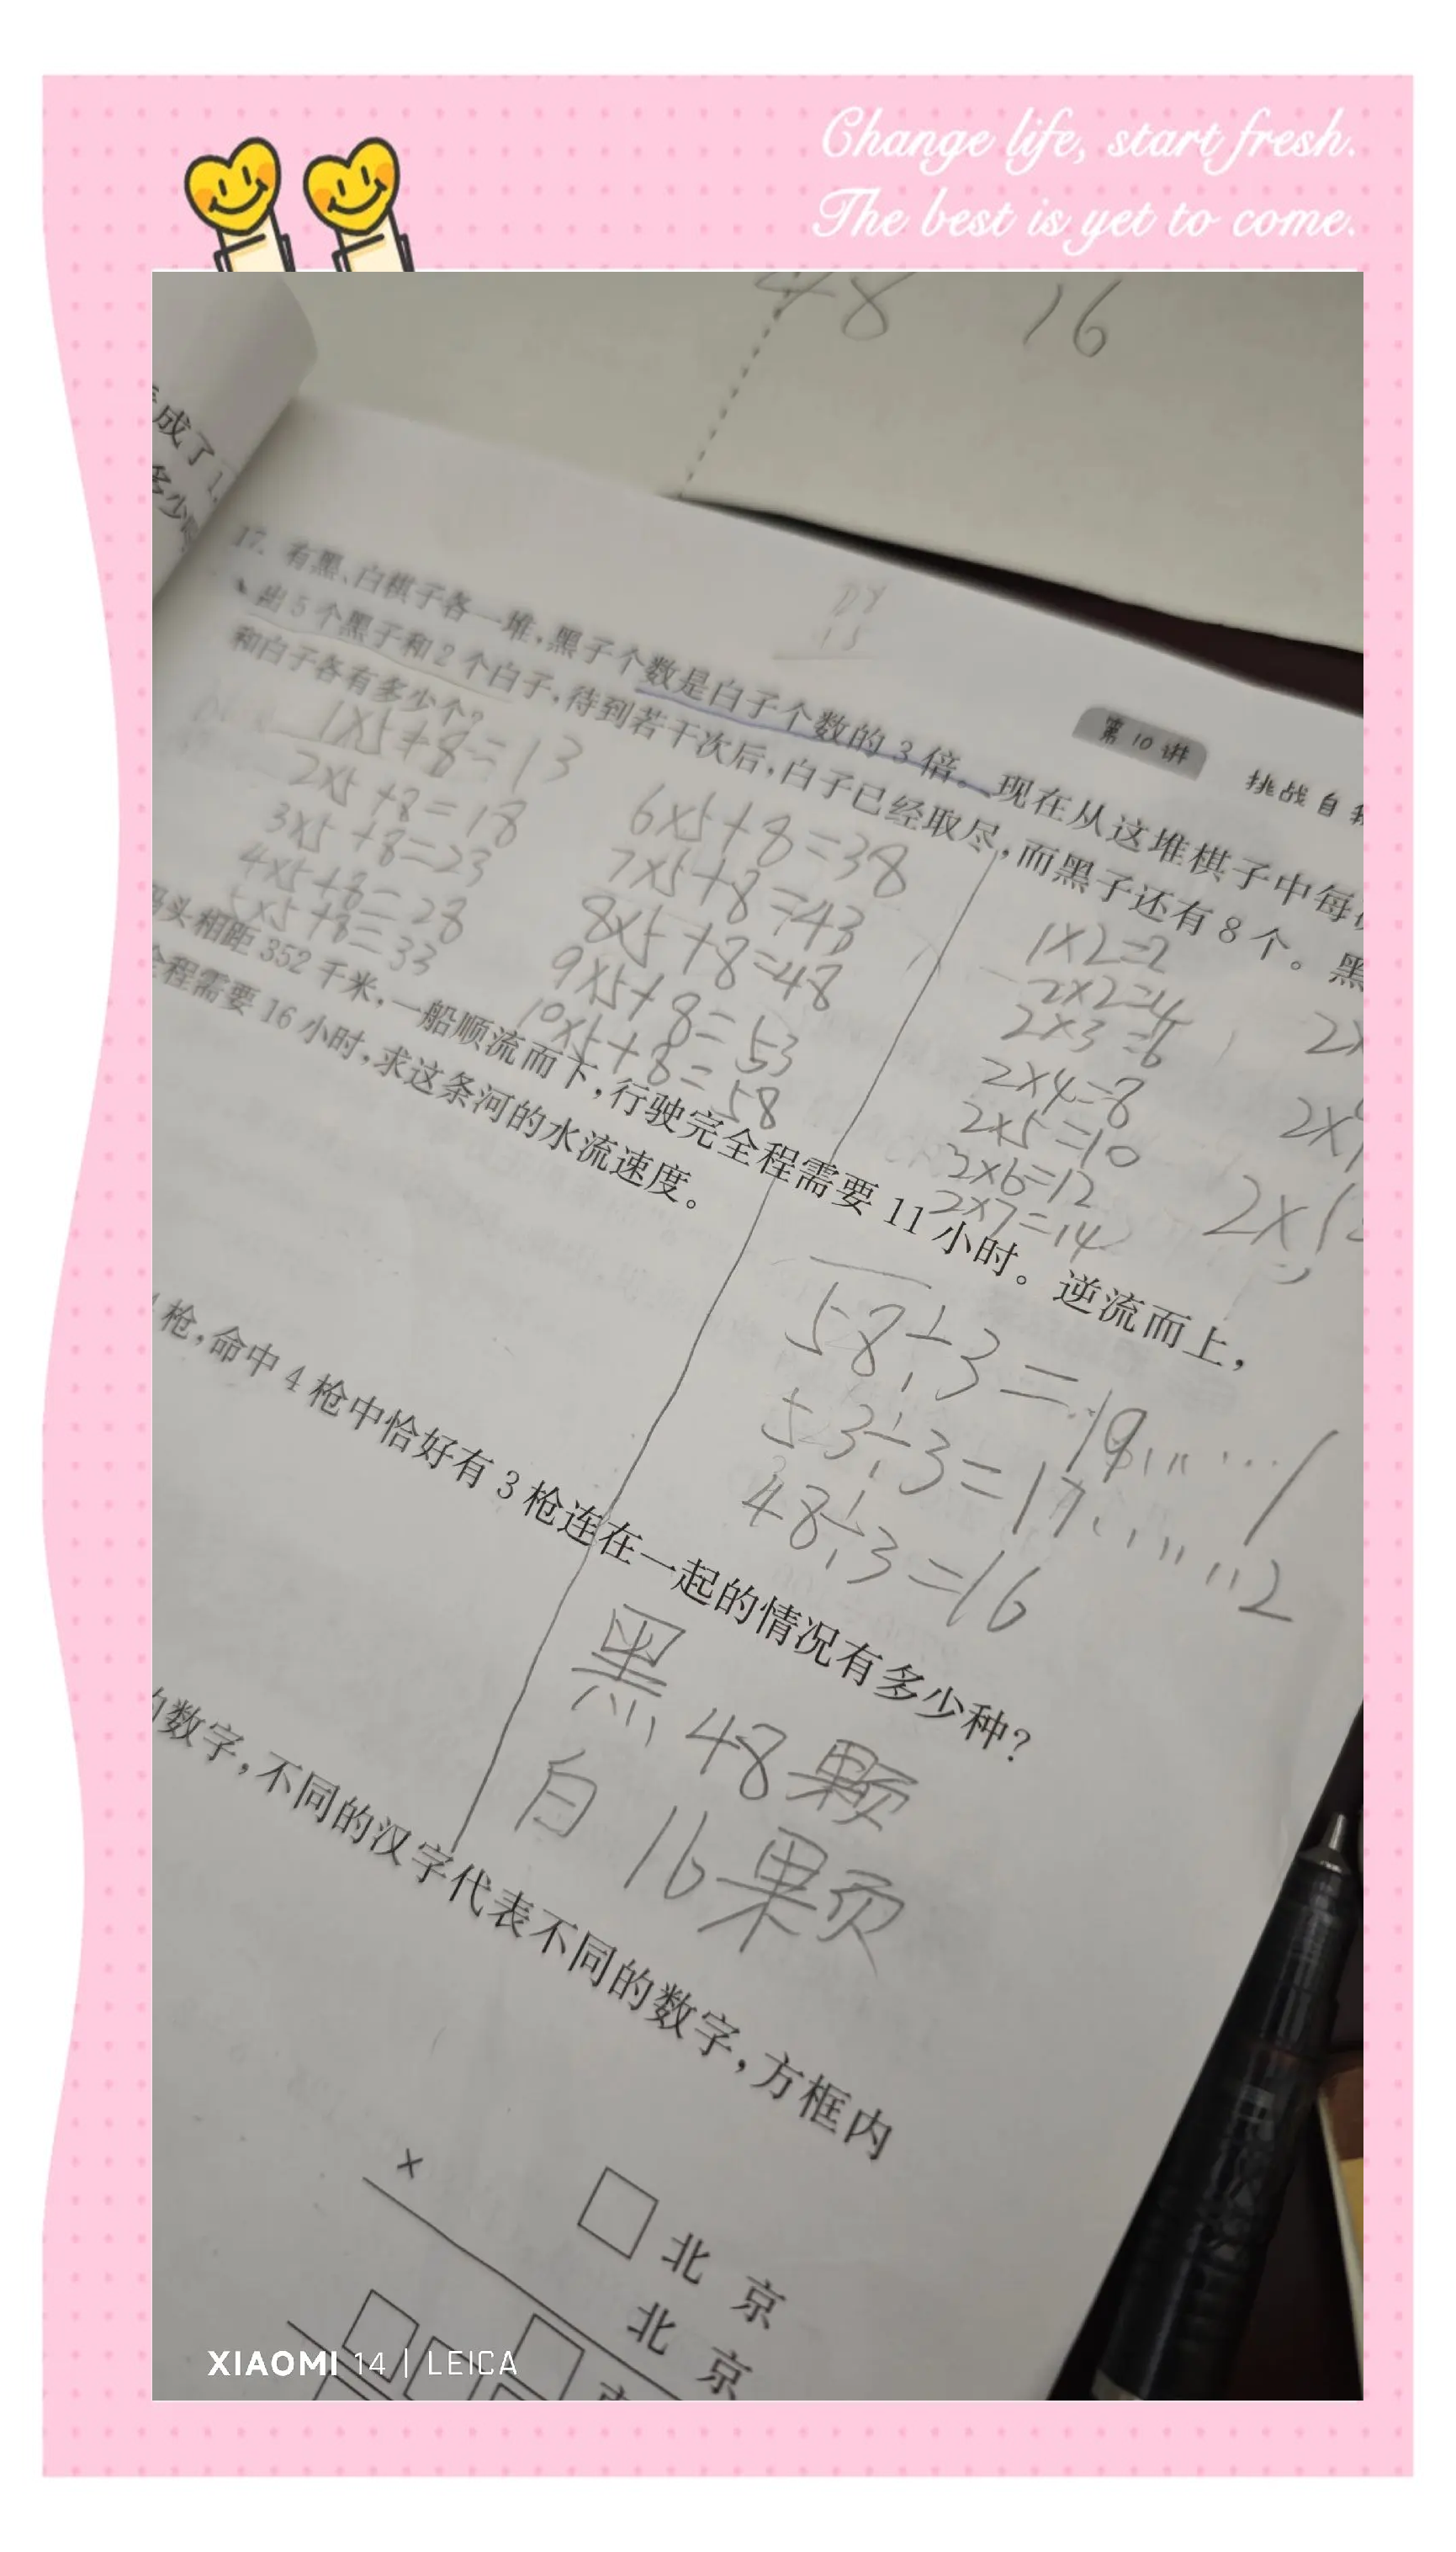 Change life, start fresh.
The best is yet to come.
48 16
成了1.
多少
第10讲 挑战自我
17. 有黑、白棋子各一堆,黑子个数是白子个数的3倍。现在从这堆棋子中每
出5个黑子和2个白子,待到若干次后,白子已经取尽,而黑子还有8个。黑
和白子各有多少个?
1×5+8=13
2×5+8=18
3×5+8=23
4×5+8=28
5×5+8=33
6×5+8=38
7×5+8=43
8×5+8=48
9×5+8=53
10×5+8=58
1×2=2
2×2=4
2×3=6
2×4=8
2×5=10
2×6=12
2×7=14
码头相距352千米,一船顺流而下,行驶完全程需要11小时。逆流而上,
全程需要16小时,求这条河的水流速度。
58÷3=19……1
53÷3=17……2
48÷3=16
枪,命中4枪中恰好有3枪连在一起的情况有多少种?
黑48颗
白16颗
的数字,不同的汉字代表不同的数字,方框内
□北京
× 北京
XIAOMI 14 | LEICA